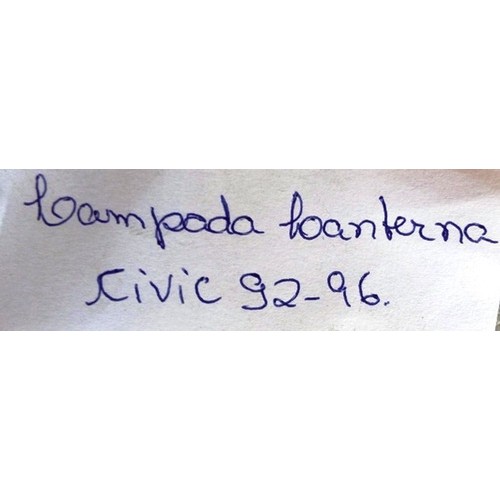 Lampada Lanterna
Civic 92-96.